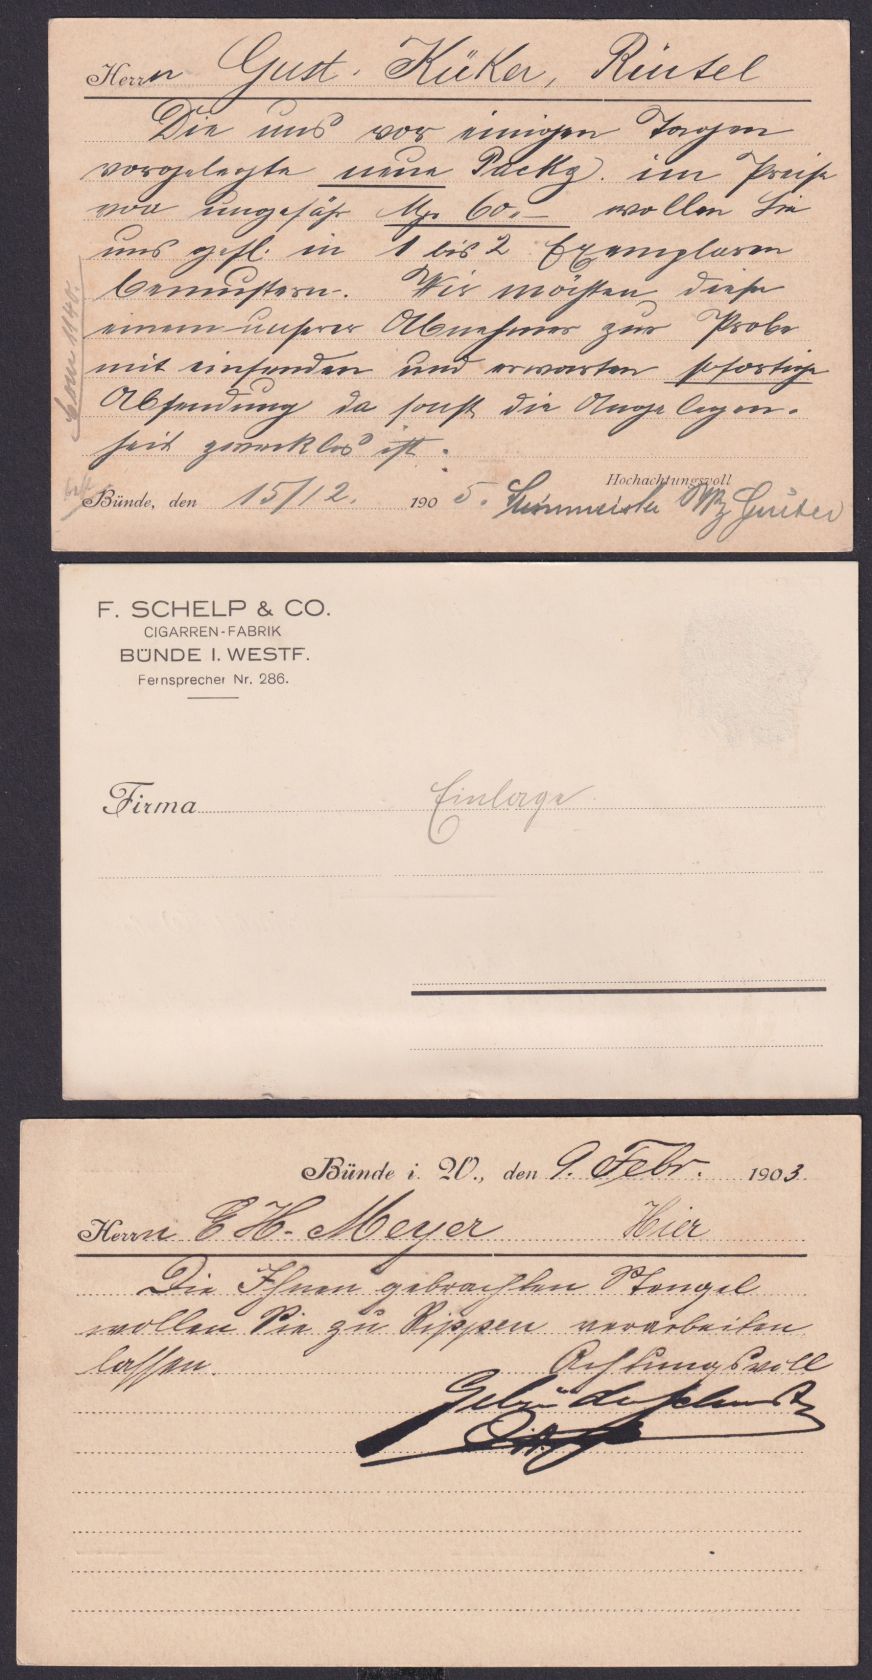 Herrn Gust. Küker, Rintel
Die uns vor einigen Tagen
vorgelegte neue Packg. im Preise
von ungefähr Mk. 60.- wollen Sie
uns gefl. in 1 bis 2 Exemplaren
bemustern. Wir möchten diese
einem unserer Abnehmer zur Probe
mit einsenden und erwarten sofortige
Absendung da sonst die Angelegen-
heit zwecklos ist.
Hochachtungsvoll
Bünde, den 15/12. 1905.
F. SCHELP & CO.
CIGARREN-FABRIK
BÜNDE I. WESTF.
Fernsprecher Nr. 286.
Firma Einlage
Bünde i. W., den 9. Febr. 1903.
Herrn E H. Meyer Hier
Die Ihnen gebrachten Stengel
wollen Sie zu Rippen verarbeiten
lassen. Achtungsvoll